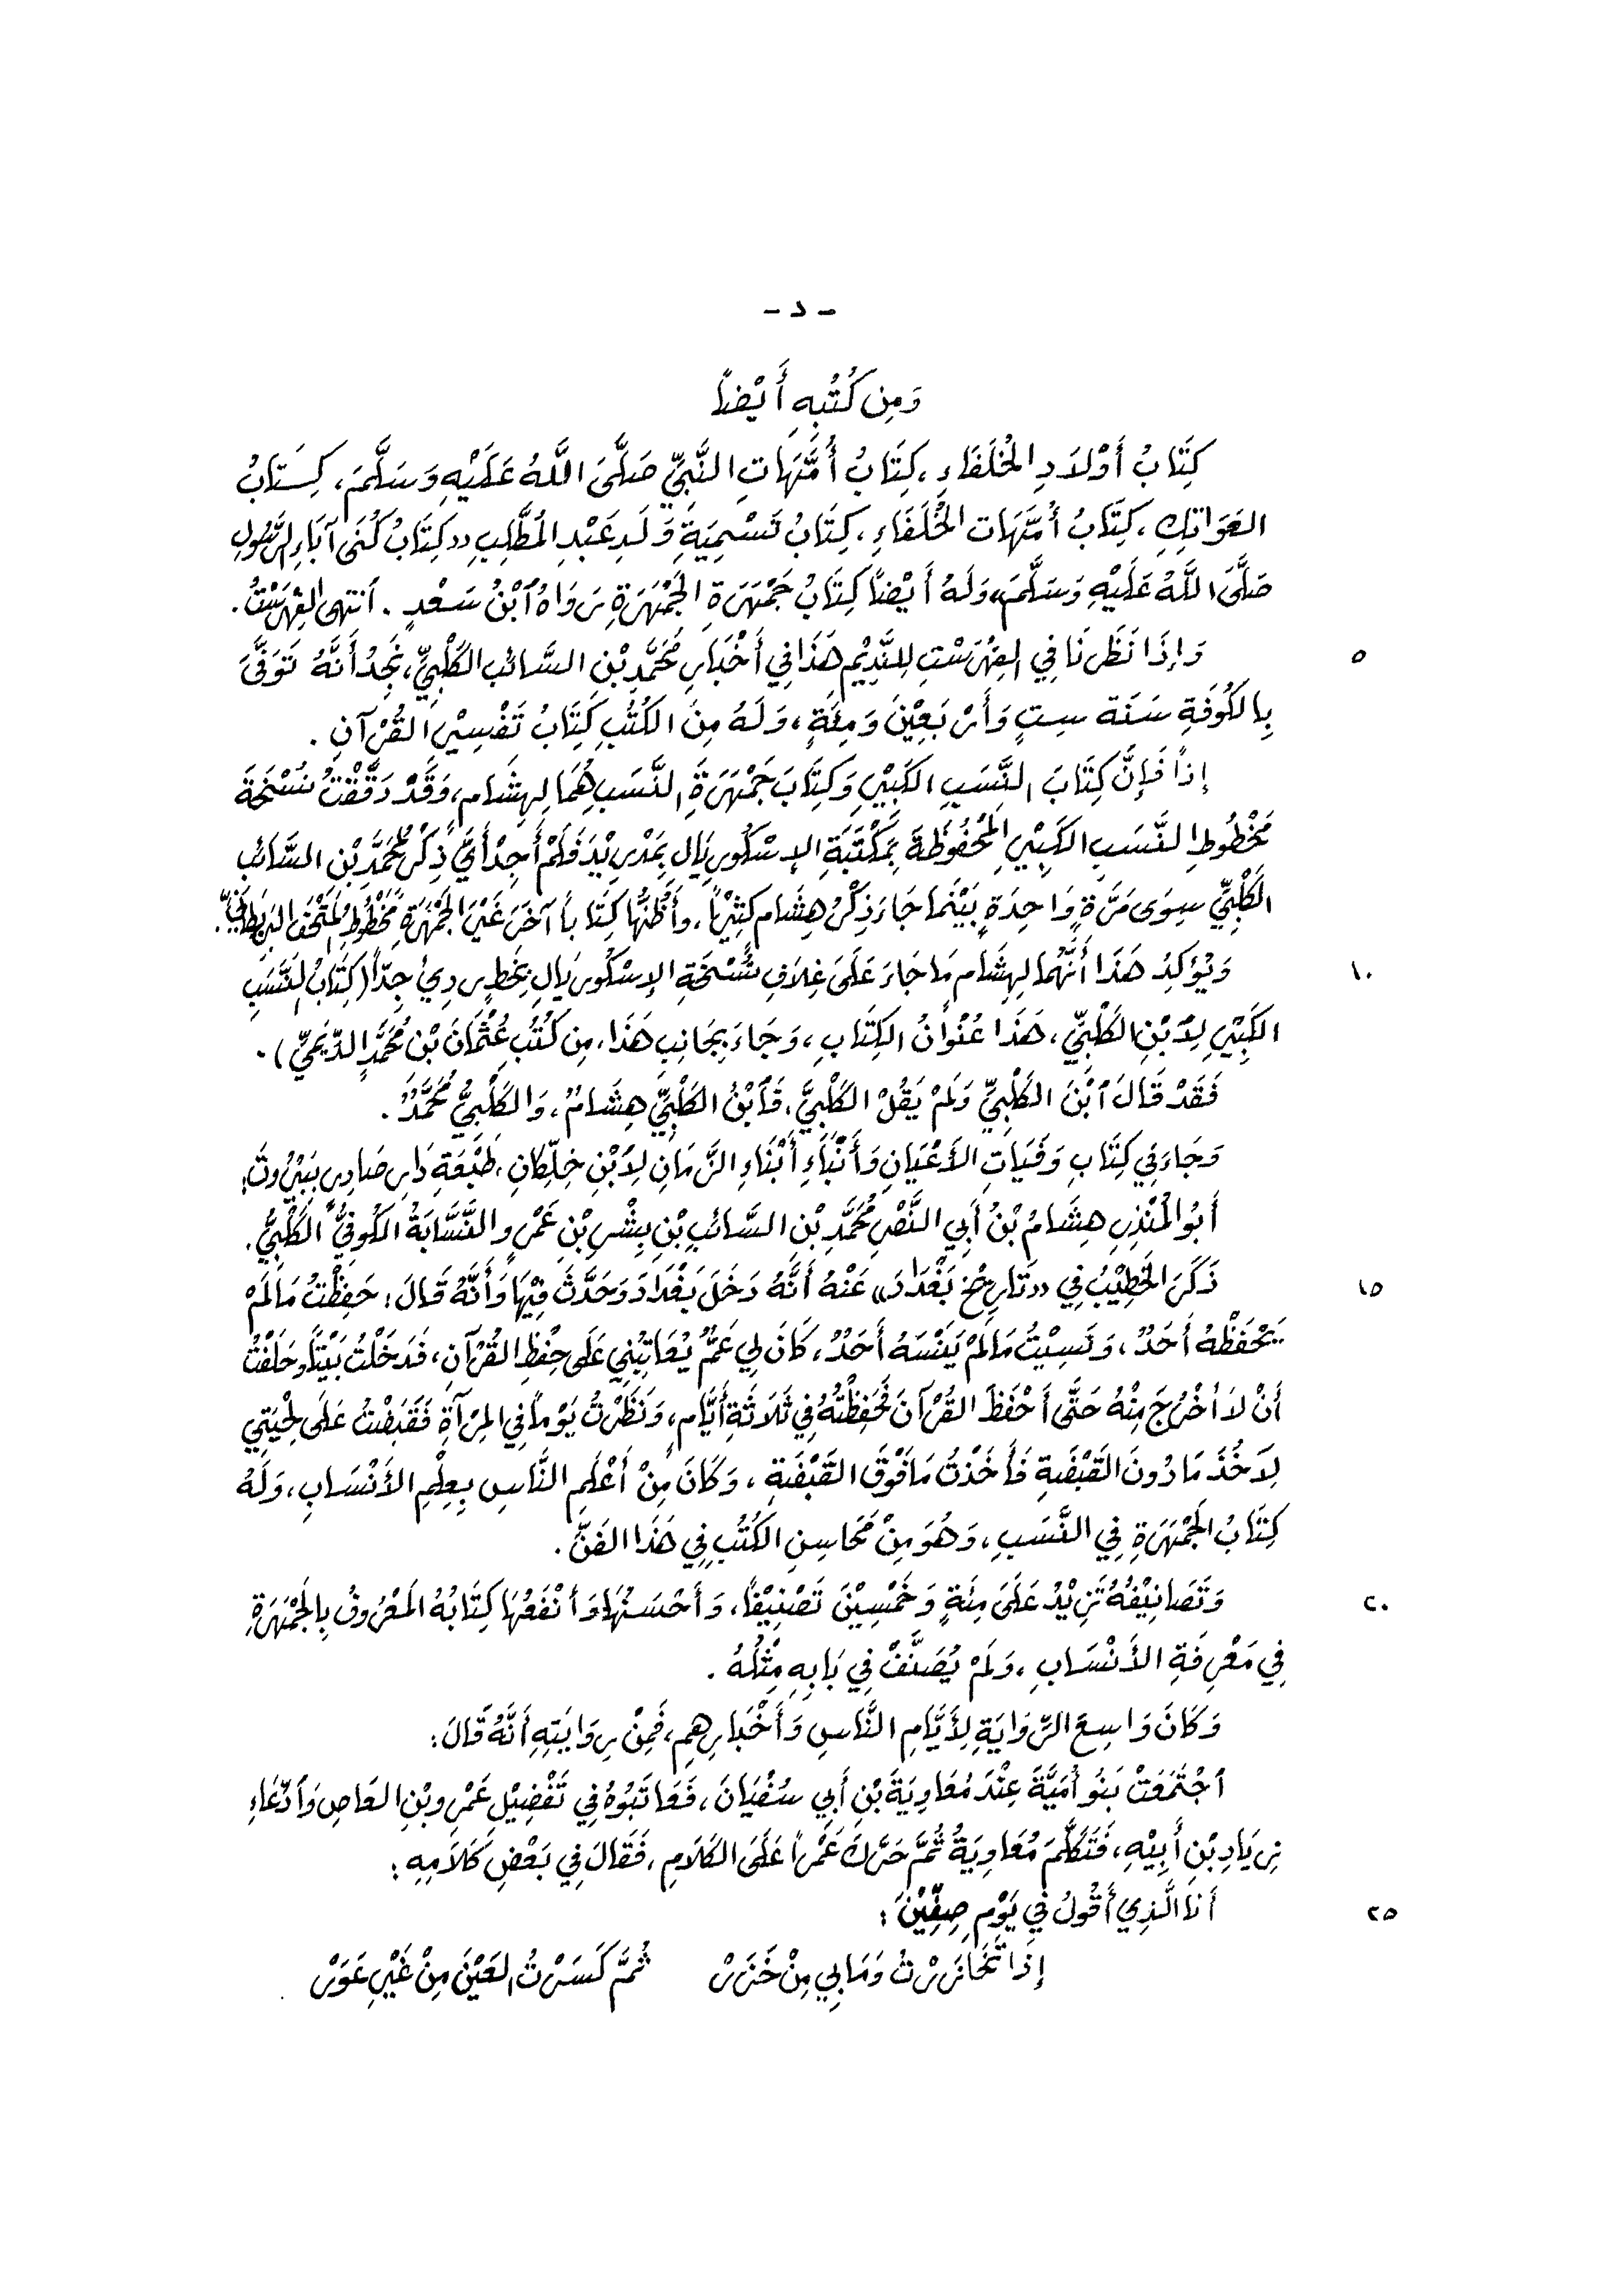 - د -
وَمِن كُتُبِهِ أَيْضاً
كِتَابُ أَوْلَادِ الخُلَفَاءِ، كِتَابُ أُمَّهَاتِ النَّبِيِّ صَلَّى اللَّهُ عَلَيْهِ وَسَلَّمَ، كِتَابُ
العَوَاتِكِ، كِتَابُ أُمَّهَات الخُلَفَاءِ، كِتَابُ تَسْمِيَةِ وَلَدِ عَبْدِ المُطَّلِبِ «كِتَابُ كُنَى آبَاءِ الرَّسُولِ
صَلَّى اللَّهُ عَلَيْهِ وَسَلَّمَ» وَلَهُ أَيْضاً كِتَابُ جَمْهَرَةِ الجَمْهَرَةِ رَوَاهُ ٱبْنُ سَعْدٍ. ٱنتهى الفِهْرَسْتُ.
وَإِذَا نَظَرْنَا فِي الفِهْرَسْتِ لِلنَّدِيْمِ هَذَا فِي أَخْبَارِ مُحَمَّدِ بْنِ السَّائبِ الكَلْبِيِّ، نَجِدُ أَنَّهُ تَوَفَّىَ ٥
بِالكُوفَةِ سَنَةَ سِتٍ وَأَرْبَعِيْنَ وَمِئَةٍ، وَلَهُ مِنَ الكُتُبِ كِتَابُ تَفْسِيْرِ القُرْآنِ.
إِذاً فَإِنَّ كِتَابَ النَّسَبِ الكَبِيْرِ وَكِتَابَ جَمْهَرَةِ النَّسَبِ هُمَا لِهِشَامٍ، وَقَدْ دَقَّقْتُ نُسْخَةَ
مَخْطُوطِ النَّسَبِ الكَبِيْرِ المَحْفُوظَةَ بِمَكْتَبَةِ الإِسْكُورِيَالِ بِمَدْرِيْدَ فَلَمْ أَجِدْ أَيَّ ذِكْرٍ لِمُحَمَّدِ بْنِ السَّائبِ
الكَلْبِيِّ سِوَى مَرَّةٍ وَاحِدَةٍ بَيْنَمَا جَاءَ ذِكْرُ هِشَام كَثِيْراً، وأَظُنُّهَا كِتَاباً آخَرَ غَيْرَ الجَمْهَرَةِ مَخْطُوطِ المُتْحَفِ البَرِيطَانِيِّ.
وَيُؤكِدُ هَذَا أَنَّهُمَا لِهِشَامٍ مَا جَاءَ عَلَى غِلَافِ نُسْخَةِ الإِسْكُورِيَالِ بِخَطٍ رديء جِدّاً (كِتَابُ النَّسَبِ ١٠
الكَبِيْرِ لِٱبْنِ الكَلْبِيِّ، هَذَا عُنْوَانُ الكِتَابِ، وَجَاءَ بِجَانِبِ هَذَا، مِن كُتُبِ عُثْمَانَ بْنِ مُحَمَّدٍ الدِّيَمِيِّ).
فَقَدْ قَالَ ٱبْنَ الكَلْبِيِّ وَلَمْ يَقُلْ الكَلْبِيَّ، فَٱبْنُ الكَلْبِيِّ هِشَامٌ، وَالكَلْبِيُّ مُحَمَّدٌ.
وَجَاءَ فِي كِتَابِ وَفَيَاتِ الأَعْيَانِ وَأَنْبَاءِ أَبْنَاءِ الزَّمَانِ لِٱبْنِ خِلِّكَانِ، طَبْعَةِ دَارِ صَادِرِ بِبَيْرُوتَ:
أَبُو المُنْذِرِ هِشَامُ بْنُ أَبِي النَّضْرِ مُحَمَّدِ بْنِ السَّائبِ بْنِ بِشْرِ بْنِ عَمْرٍو النَّسَّابَةُ الكُوفِيُّ الكَلْبِيُّ.
ذَكَرَ الخَطِيْبُ فِي «تَارِيخِ بَغْدَادَ» عَنْهُ أَنَّهُ دَخَلَ بَغْدَادَ وَحَدَّثَ فِيْهَا وَأَنَّهُ قَالَ: حَفِظْتُ مَا لَمْ ١٥
يَحْفَظْهُ أَحَدٌ، وَنَسِيْتُ مَا لَمْ يَنْسَهُ أَحَدٌ، كَانَ لِي عَمٌّ يُعَاتِبُنِي عَلَى حِفْظِ القُرْآنِ، فَدَخَلْتُ بَيْتاً وحَلَفْتُ
أَنْ لَا أَخْرُجَ مِنْهُ حَتَّى أَحْفَظَ القُرْآنَ فَحَفِظْتُهُ فِي ثَلَاثَةِ أَيَّامٍ، وَنَظَرْتُ يَوْماً فِي المِرْآةِ فَقَبَضْتُ عَلَى لِحْيَتِي
لِآخُذَ مَا دُونَ القَبْضَةِ فَأَخَذْتُ مَا فَوْقَ القَبْضَةِ، وَكَانَ مِنْ أَعْلَمِ النَّاسِ بِعِلْمِ الأَنْسَابِ، وَلَهُ
كِتَابُ الجَمْهَرَةِ فِي النَّسَبِ، وَهُوَ مِنْ مَحَاسِنِ الكُتُبِ فِي هَذَا الفَنِّ.
وَتَصَانِيْفُهُ تَزِيْدُ عَلَى مِئَةٍ وَخَمْسِيْنَ تَصْنِيْفاً، وَأَحْسَنُهَا وَأَنْفَعُهَا كِتَابُهُ المَعْرُوفُ بِالجَمْهَرَةِ ٢٠
فِي مَعْرِفَةِ الأَنْسَابِ، وَلَمْ يُصَنَّفْ فِي بَابِهِ مِثْلُهُ.
وَكَانَ وَاسِعَ الرِّوَايَةِ لِأَيَّامِ النَّاسِ وَأَخْبَارِهِم، فَمِنْ رِوَايَتِهِ أَنَّهُ قَالَ:
ٱجْتَمَعَتْ بَنُو أُمَيَّةَ عِنْدَ مُعَاوِيَةَ بْنِ أَبِي سُفْيَانَ، فَعَاتَبُوهُ فِي تَفْضِيْلِ عَمْرِو بْنِ العَاصِ وَٱدِّعَاءِ
زِيَادِ بْنِ أَبِيْهِ، فَتَكَلَّمَ مُعَاوِيَةُ ثُمَّ حَرَّكَ عَمْراً عَلَى الكَلَامِ، فَقَالَ فِي بَعْضِ كَلَامِهِ:
أَنَا الَّذِي أَقُولُ فِي يَوْمِ صِفِّيْنَ: ٢٥
إِذَا تَخَازَرْتُ وَمَا بِي مِنْ خَزَرْ ثُمَّ كَسَرْتُ العَيْنَ مِنْ غَيْرِ عَوَرْ